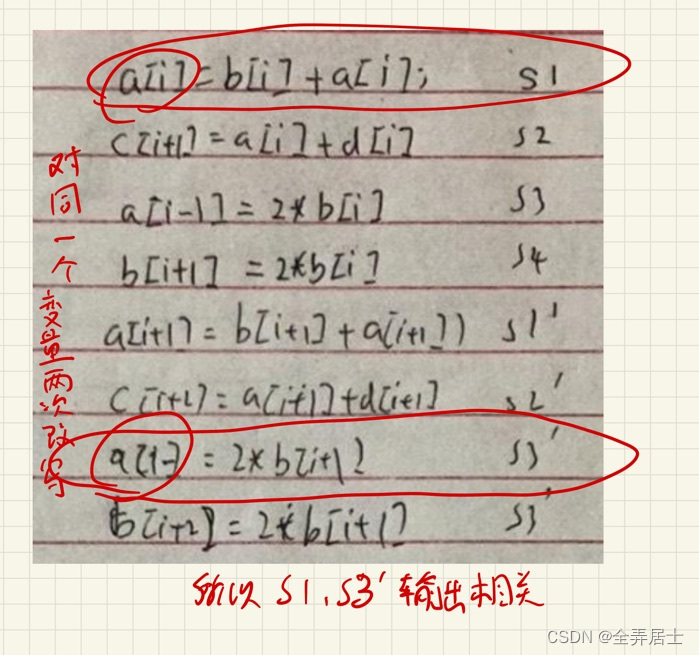 a[i] = b[i] + a[i]; S1
c[i+1] = a[i] + d[i] S2
a[i-1] = 2*b[i] S3
b[i+1] = 2*b[i] S4
a[i+1] = b[i+1] + a[i+1]) S1'
c[i+2] = a[i+1] + d[i+1] S2'
= 2*b[i+1] S3'
b[i+2] = 2*b[i+1] S3'
对同一个变量两次改写
所以 S1、S3' 输出相关
CSDN @全弄居士